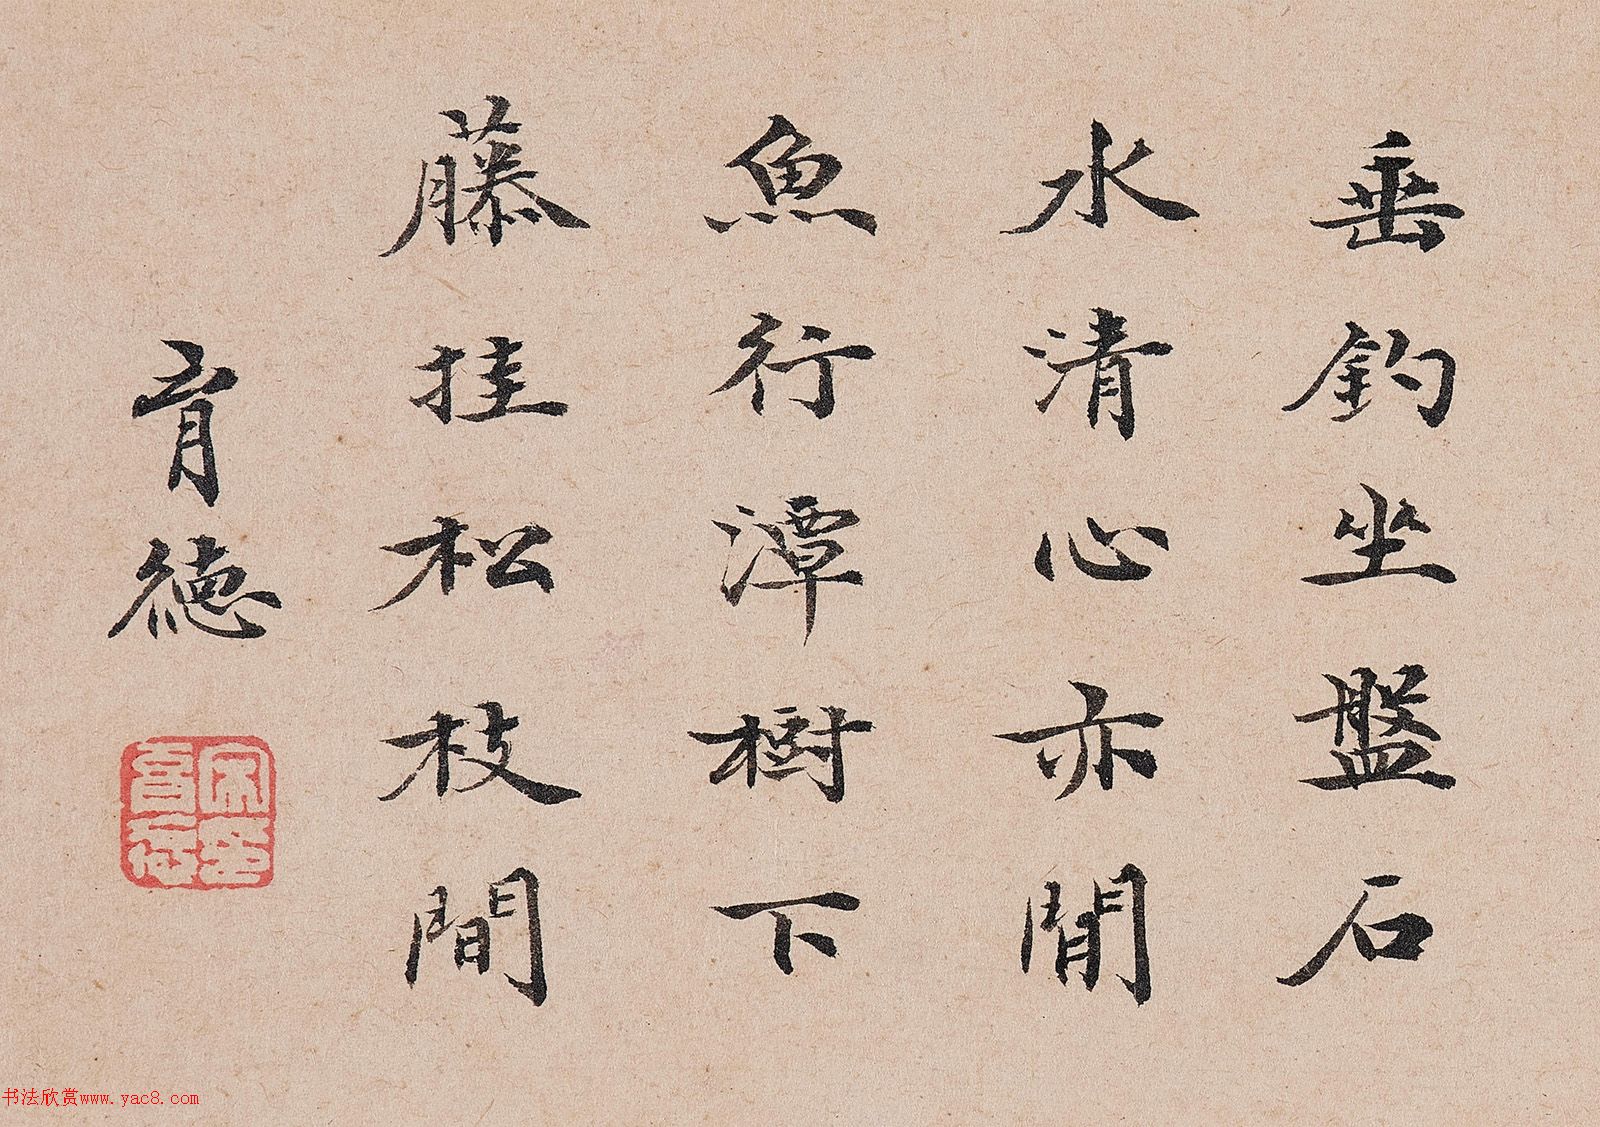 垂釣坐盤石
水清心亦閒
魚行潭樹下
藤挂松枝間
育德
书法欣赏www.yac8.com